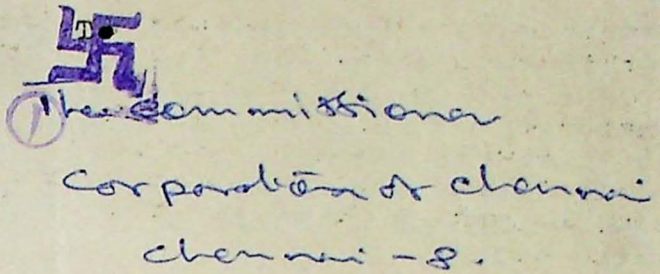 T
① The commissioner
corporation of chennai
chennai - 8.